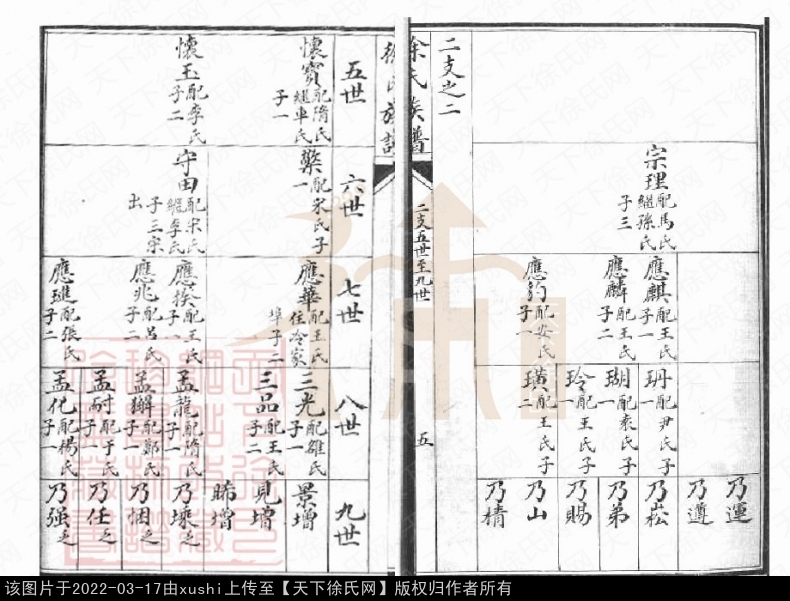 二支之二
宗理配馬氏
繼孫氏
子三
應麒配王氏
子一
應麟配王氏
子二
應豹配安氏
子一
珃配尹氏子
一
瑚配袁氏子
一
玲配王氏子
一
璜配王氏子
二
乃運
乃遵
乃崧
乃弟
乃賜
乃山
乃精
徐氏族譜
二支五世至九世
五
五世
懷寶配隋氏
繼車氏
子一
懷玉配李氏
子二
六世
槃配宋氏子
一
守田配宋氏
繼李氏
子三宗
出
七世
應華配王氏
住冷家
埠子二
應揆配王氏
子一
應兆配呂氏
子二
應璡配張氏
子二
八世
三光配雒氏
子一
三品配王氏
子二
孟龍配隋氏
子一
孟獬配鄭氏
子一
孟耐配于氏
子一
孟化配楊氏
子一
九世
景增
見增
晞增
乃壤之
乃悃之
乃任之
乃強之
该图片于2022-03-17由xushi上传至【天下徐氏网】版权归作者所有